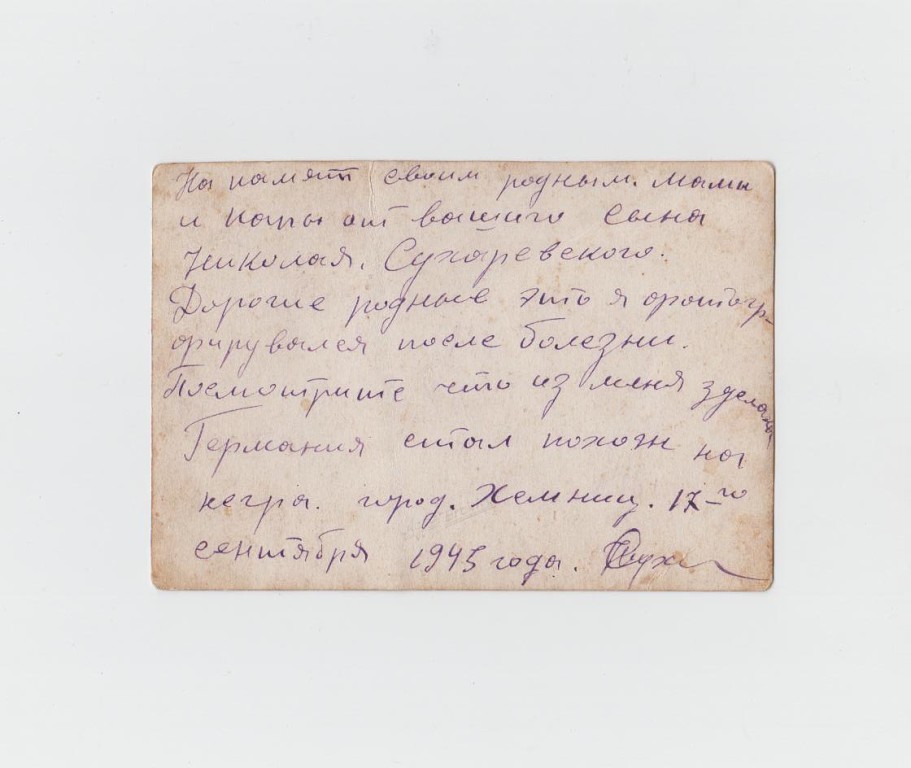 На памят своим родным. мамы
и папы от вашиго сына
Николая. Сухаревского.
Дорогие родные это я фотогр-
фирувался после болезни.
Посмотрите что из меня зделала
Германия стал похож на
негра. город. Хемниц. 17-го
сентября 1945 года. Сух